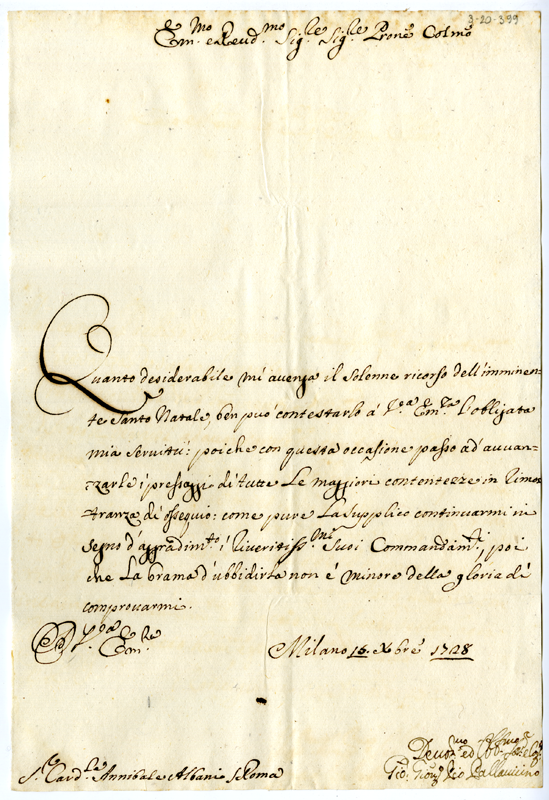 3-20-399
Em.mo e Reud.mo Sig.re Sig.re Prone Colmo
Quanto desiderabile mi auenga il solenne ricorso dell'imminen-
te Santo Natale, ben può contestarlo á V.ra Em.za l'obligata
mia seruitù: poiche con questa occasione passo ad auuan-
zarle i pressaggi di tutte le maggiori contentezze in dimos
tranza di ossequio: come pure la supplico continuarmi in
segno d'aggradim.to i riueritiss.mi suoi Commandam.ti, poi
che la brama d'ubbidirla non é minore della gloria di
comprouarmi.
V.ra Em.za
Milano 15 Xbre 1728
S.r Card.le Annibale Albani Roma
Deuot.mo ed Obl.
Gio: Pallauicino